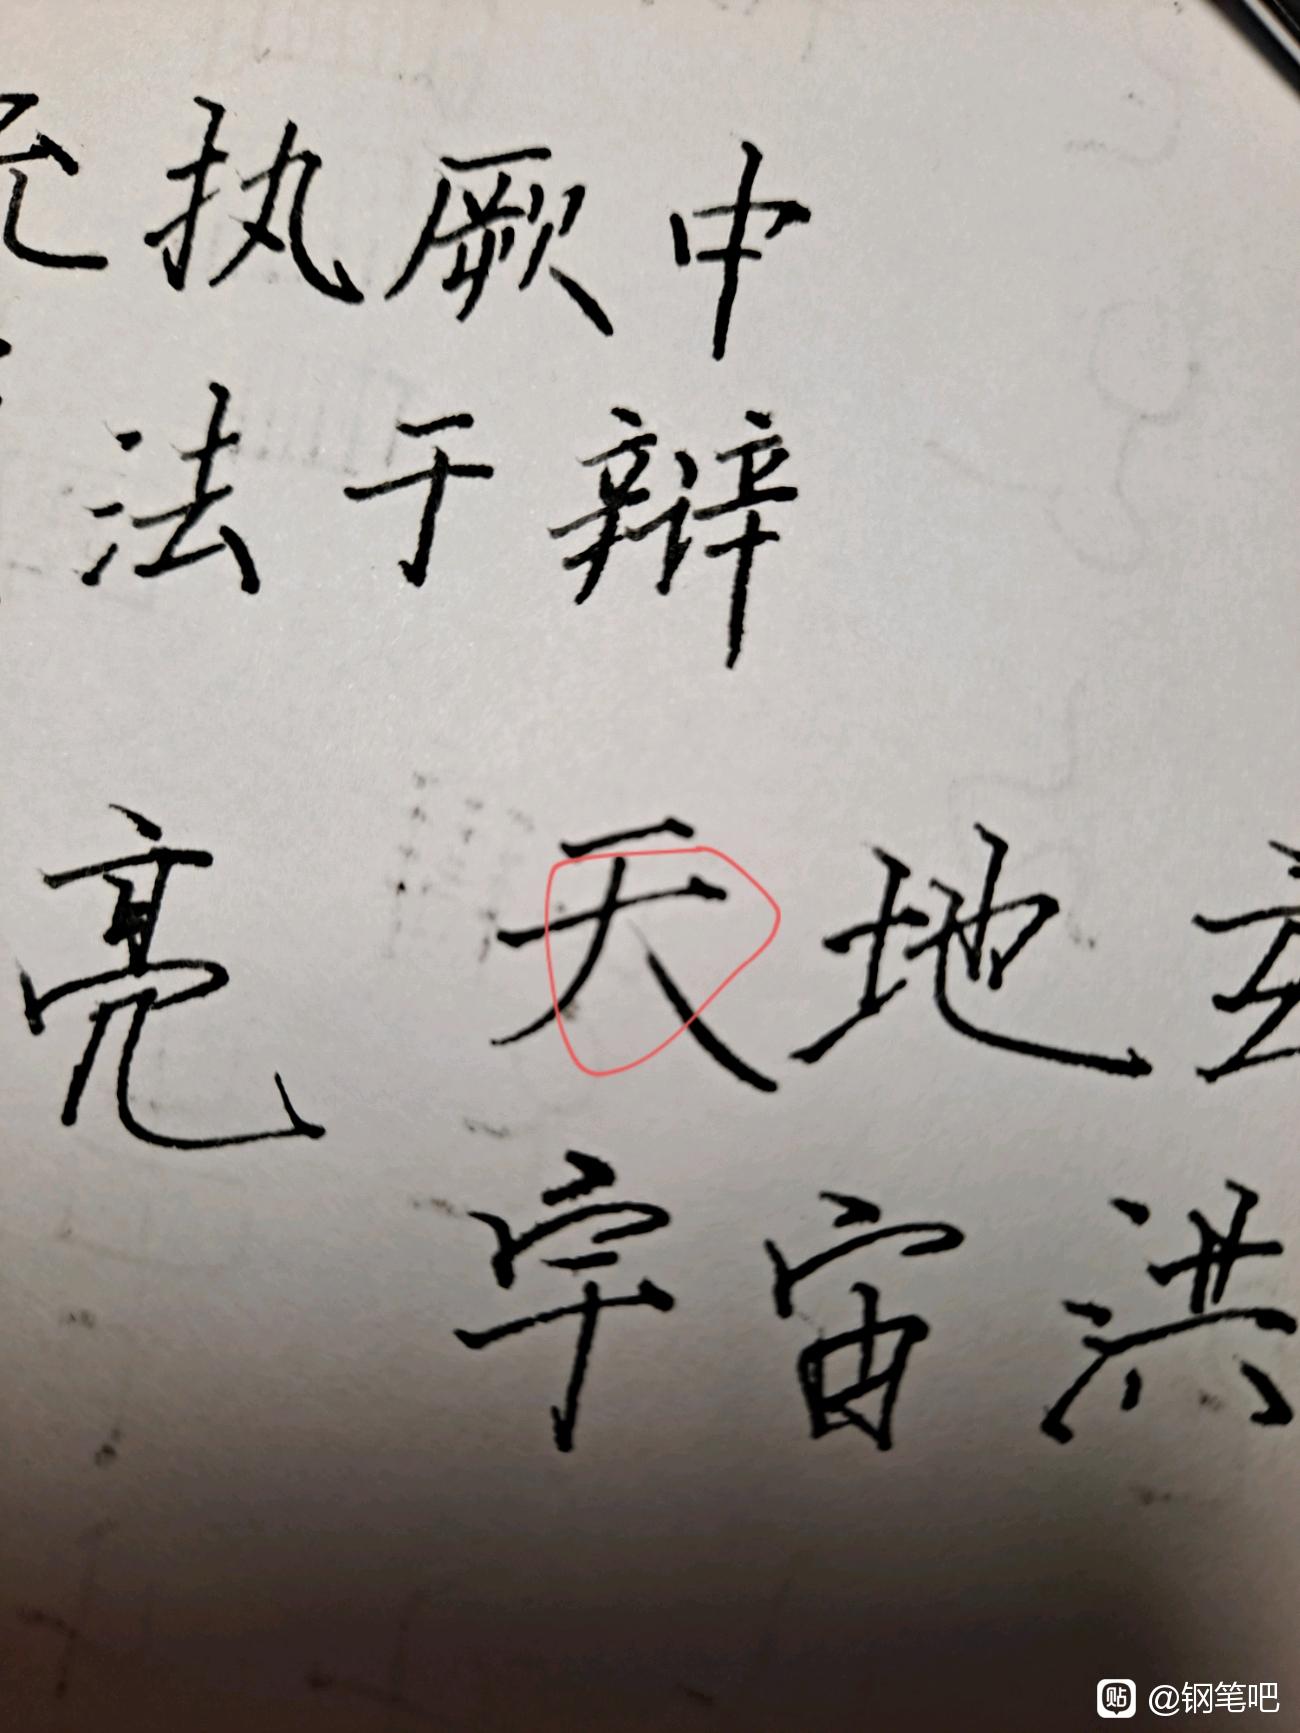 允执厥中
法于辩
亮 天地玄
宇宙洪
贴 @钢笔吧